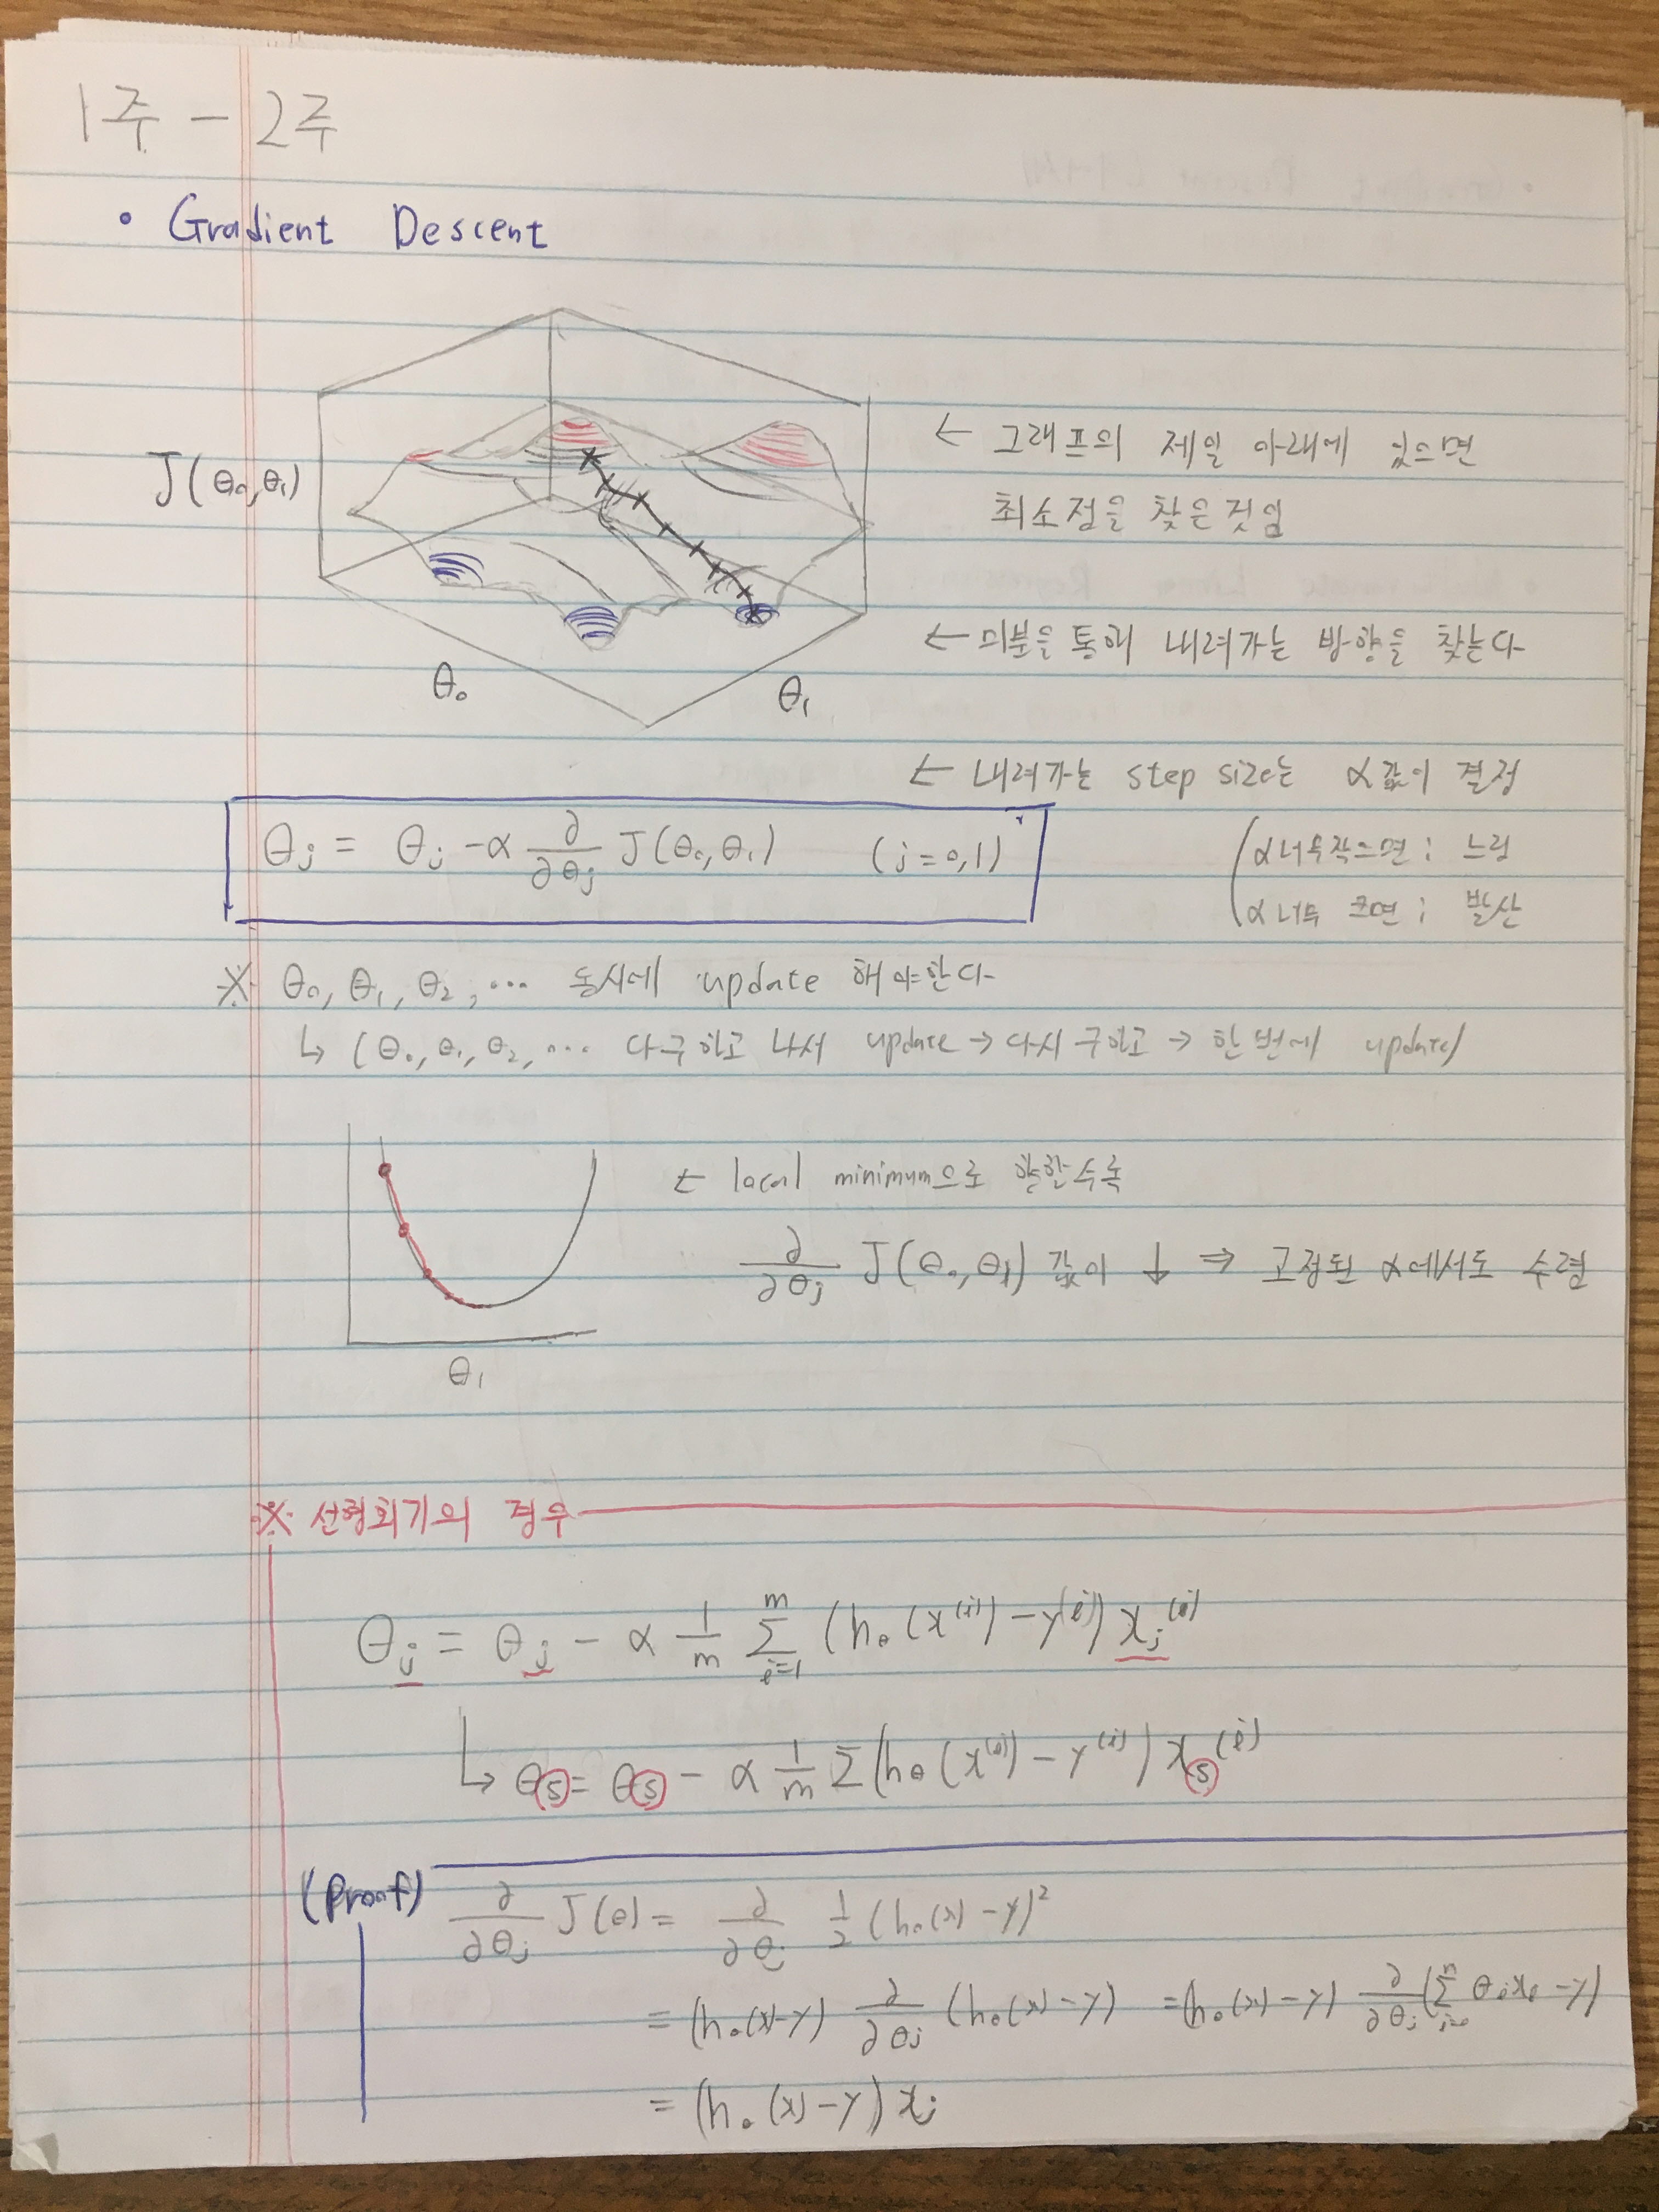 1주 - 2주
• Gradient Descent
J(θ₀,θ₁)
θ₀
θ₁
← 그래프의 제일 아래에 있으면
최소점을 찾은것임
← 미분을 통해 내려가는 방향을 찾는다
← 내려가는 step size는 α값이 결정
α너무작으면 ; 느림
α너무 크면 ; 발산
θⱼ = θⱼ -α ∂/∂θⱼ J(θ₀,θ₁) (j=0,1)
※ θ₀, θ₁, θ₂, ... 동시에 update 해야한다
↳ (θ₀, θ₁, θ₂, ... 다구하고 나서 update → 다시 구하고 → 한번에 update)
← local minimum으로 향할수록
∂/∂θⱼ J(θ₀,θ₁) 값이 ↓ ⇒ 고정된 α에서도 수렴
θ₁
※ 선형회기의 경우
θⱼ = θⱼ - α 1/m Σᵢ₌₁ᵐ (hθ(x⁽ⁱ⁾) - y⁽ⁱ⁾) xⱼ⁽ⁱ⁾
↳ θ₅ = θ₅ - α 1/m Σ(hθ(x⁽ⁱ⁾) - y⁽ⁱ⁾) x₅⁽ⁱ⁾
(Proof)
∂/∂θⱼ J(θ) = ∂/∂θⱼ 1/2 (hθ(x) - y)²
= (hθ(x)-y) ∂/∂θⱼ (hθ(x)-y) = (hθ(x)-y) ∂/∂θⱼ (Σᵢ₌₀ⁿ θᵢxᵢ - y)
= (hθ(x)-y) xⱼ